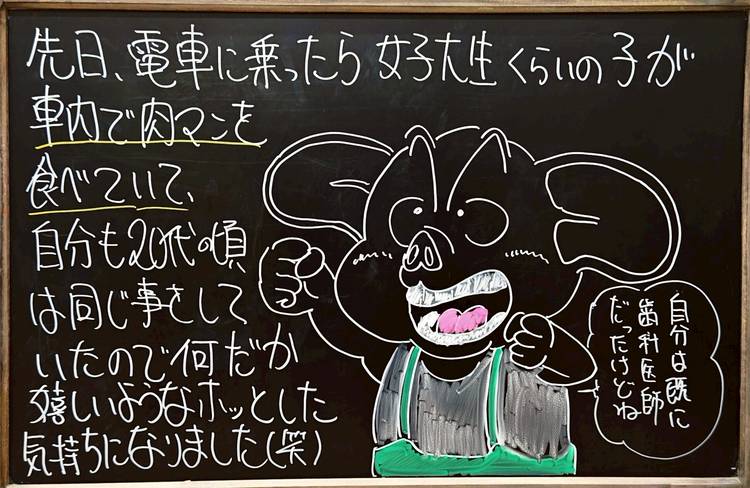 先日、電車に乗ったら女子大生くらいの子が
車内で肉マンを
食べていて、
自分も20代の頃
は同じ事をして
いたので何だか
嬉しいようなホッとした
気持ちになりました(笑)
自分は既に
歯科医師
だったけどね